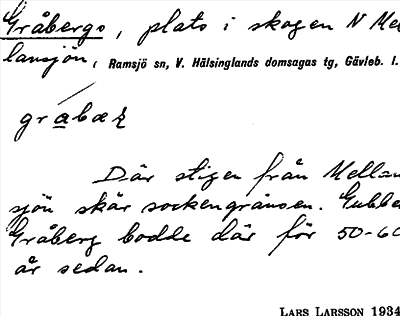 Gråbergs, plats i skogen N Mel
lansjön, Ramsjö sn, V. Hälsinglands domsagas tg, Gävleb. l.
grabæʀ̨
Där stigen från Mellan
sjön skär sockengränsen. Gubbe
Gråberg bodde där för 50-60
år sedan.
LARS LARSSON 1934